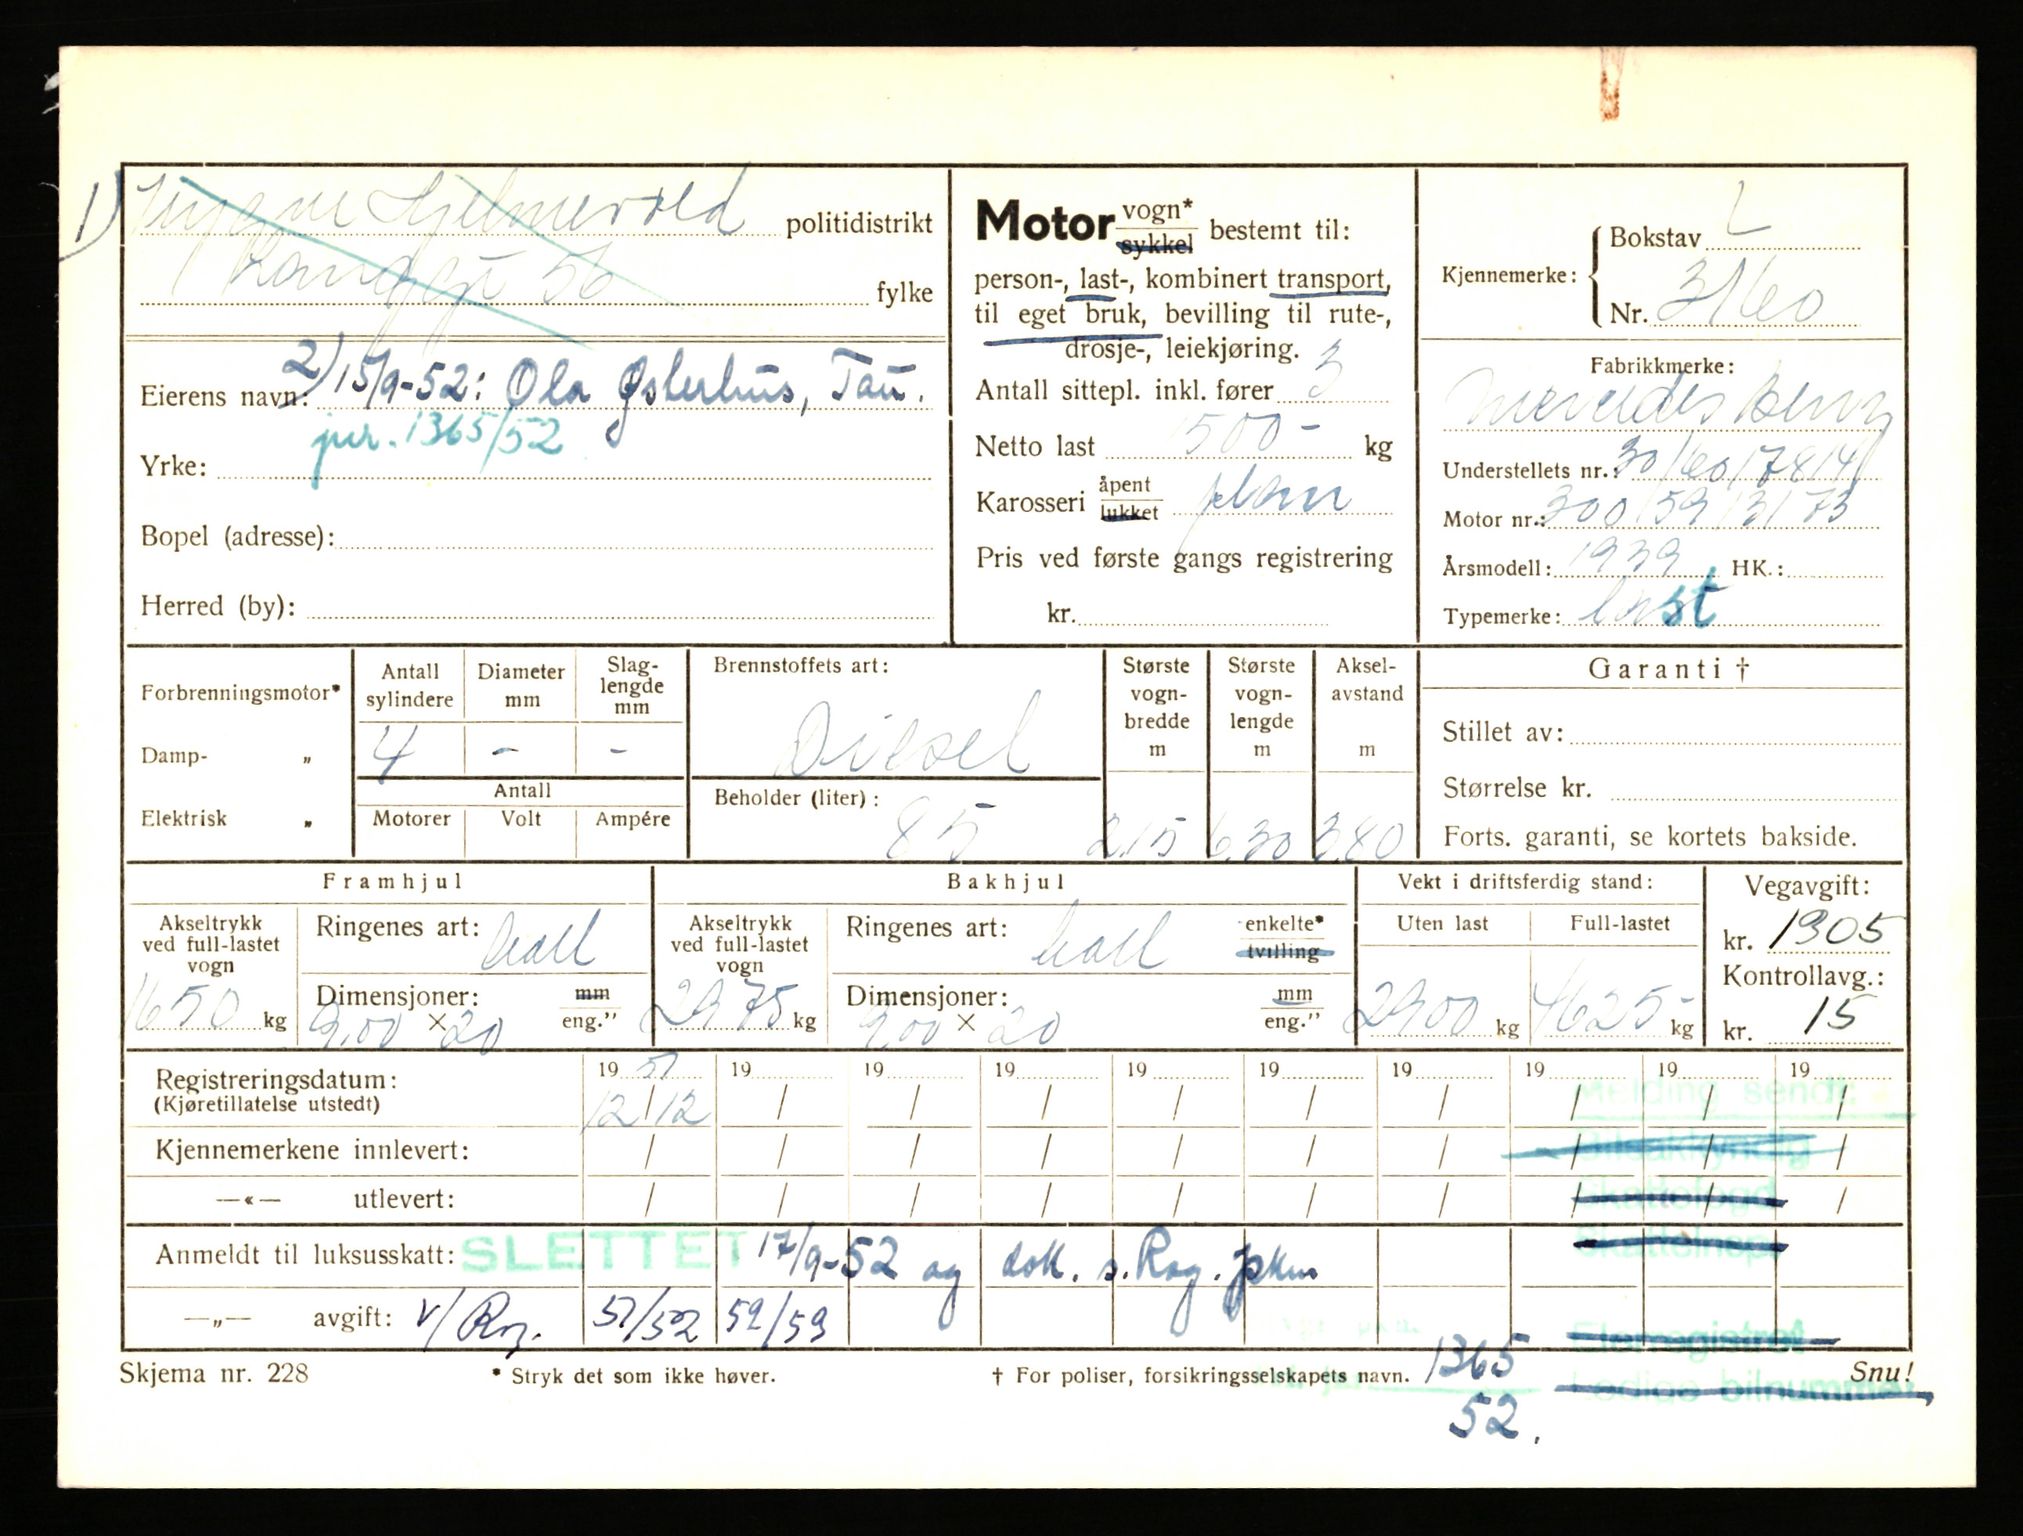 1) Trygve Hjelmevold politidistrikt
56 fylke
Eierens navn: 2) 15/9-52: Ola Østerhus, Tau.
jnr. 1365/52
Yrke:
Bopel (adresse):
Herred (by):
Motor vogn* sykkel bestemt til:
person-, last-, kombinert transport,
til eget bruk, bevilling til rute-,
drosje-, leiekjøring.
Antall sittepl. inkl. fører 3
Netto last 1500- kg
Karosseri åpent lukket plan
Pris ved første gangs registrering
kr.
Kjennemerke: Bokstav L
Nr. 3160
Fabrikkmerke:
Mercedes Benz
Understellets nr.: 30/60/7814
Motor nr.: 300/59/3173
Årsmodell: 1939 HK.:
Typemerke: last
Forbrenningsmotor*
Damp- „
Elektrisk „
Antall sylindere
4
Diameter mm
-
Slag-lengde mm
-
Antall
Motorer Volt Ampére
Brennstoffets art:
Diesel
Beholder (liter):
85
Største vogn-bredde m
2,15
Største vogn-lengde m
6,30
Aksel-avstand m
3,80
Garanti †
Stillet av:
Størrelse kr.
Forts. garanti, se kortets bakside.
Framhjul
Akseltrykk ved full-lastet vogn
1650 kg
Ringenes art: luft
Dimensjoner: mm eng.”
9,00 × 20
Bakhjul
Akseltrykk ved full-lastet vogn
2975 kg
Ringenes art: luft enkelte* tvilling
Dimensjoner: mm eng.”
9,00 × 20
Vekt i driftsferdig stand:
Uten last Full-lastet
2900 kg 4625- kg
Vegavgift:
kr. 1305
Kontrollavg.:
kr. 15
Registreringsdatum: 19 51 19 19 19 19 19 19 19 19 19
(Kjøretillatelse utstedt) 12/12 / / / / / / / / /
Melding sendt:
Kjennemerkene innlevert: / / / / / / / / / /
Bilsakkyndig
—«— utlevert: / / / / / / / / / /
Skattefogd
Anmeldt til luksusskatt: SLETTET 17/9-52 og dok. s. Rog. pkm
Skatteinsp.
—„— avgift: v/Rog. 51/52 52/53
Eierregistret
Skjema nr. 228 * Stryk det som ikke høver. † For poliser, forsikringsselskapets navn. 1365 Snu!
Ledige bilnummer
52.